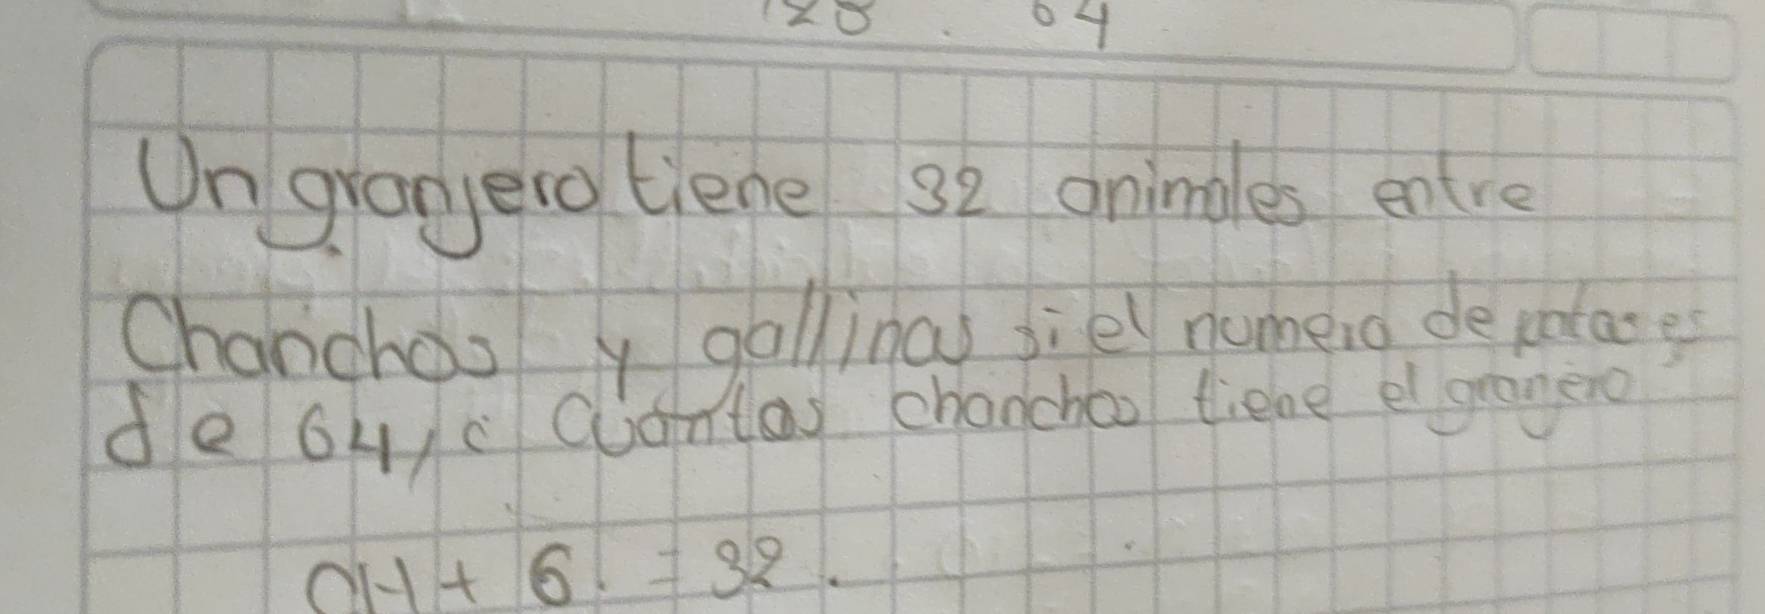 128. 64
Un granjero tiene 32 animales entre
Chanchos y gallinas si el numero de patas es
de 64, ¿ Cuantas chanchos tiene el granjero
CH + G. = 32.